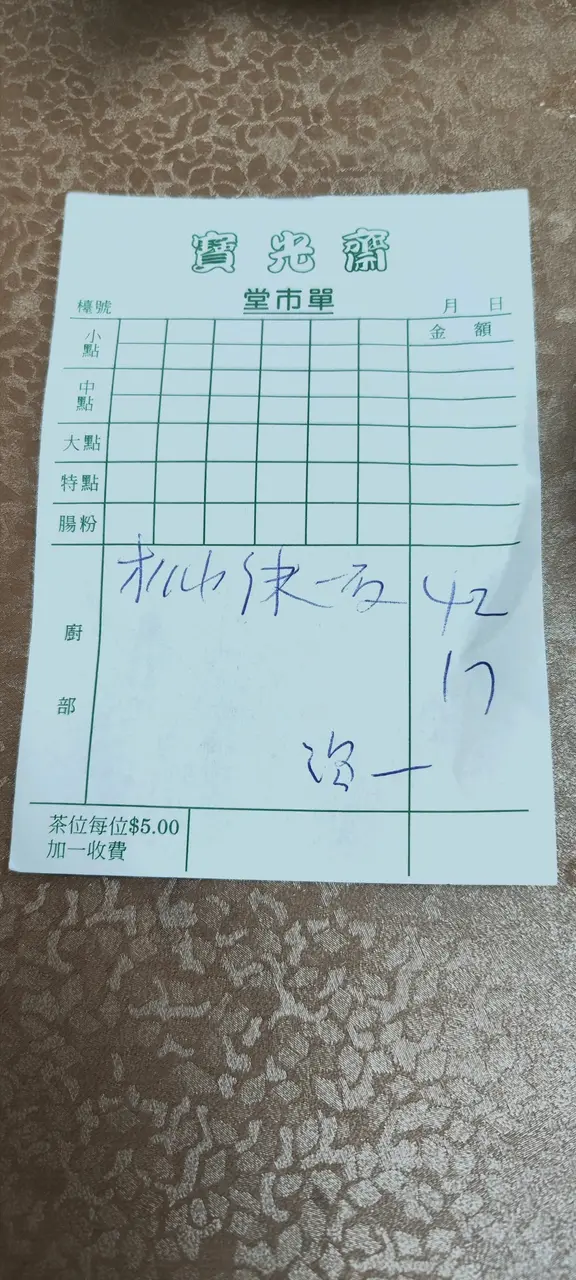 寶光齋
堂市單
檯號 月 日
金額
小點
中點
大點
特點
腸粉
廚部
42
17
茶位每位$5.00
加一收費